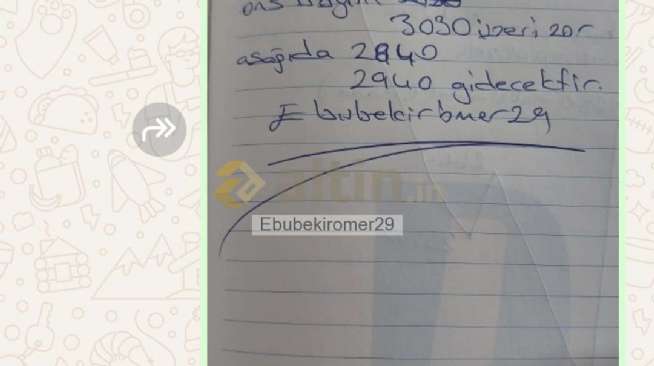 ons bugün
3030 üzeri zor
aşağıda 2840
2940 gidecektir.
Ebubekirömer29
altin.in
Ebubekiromer29